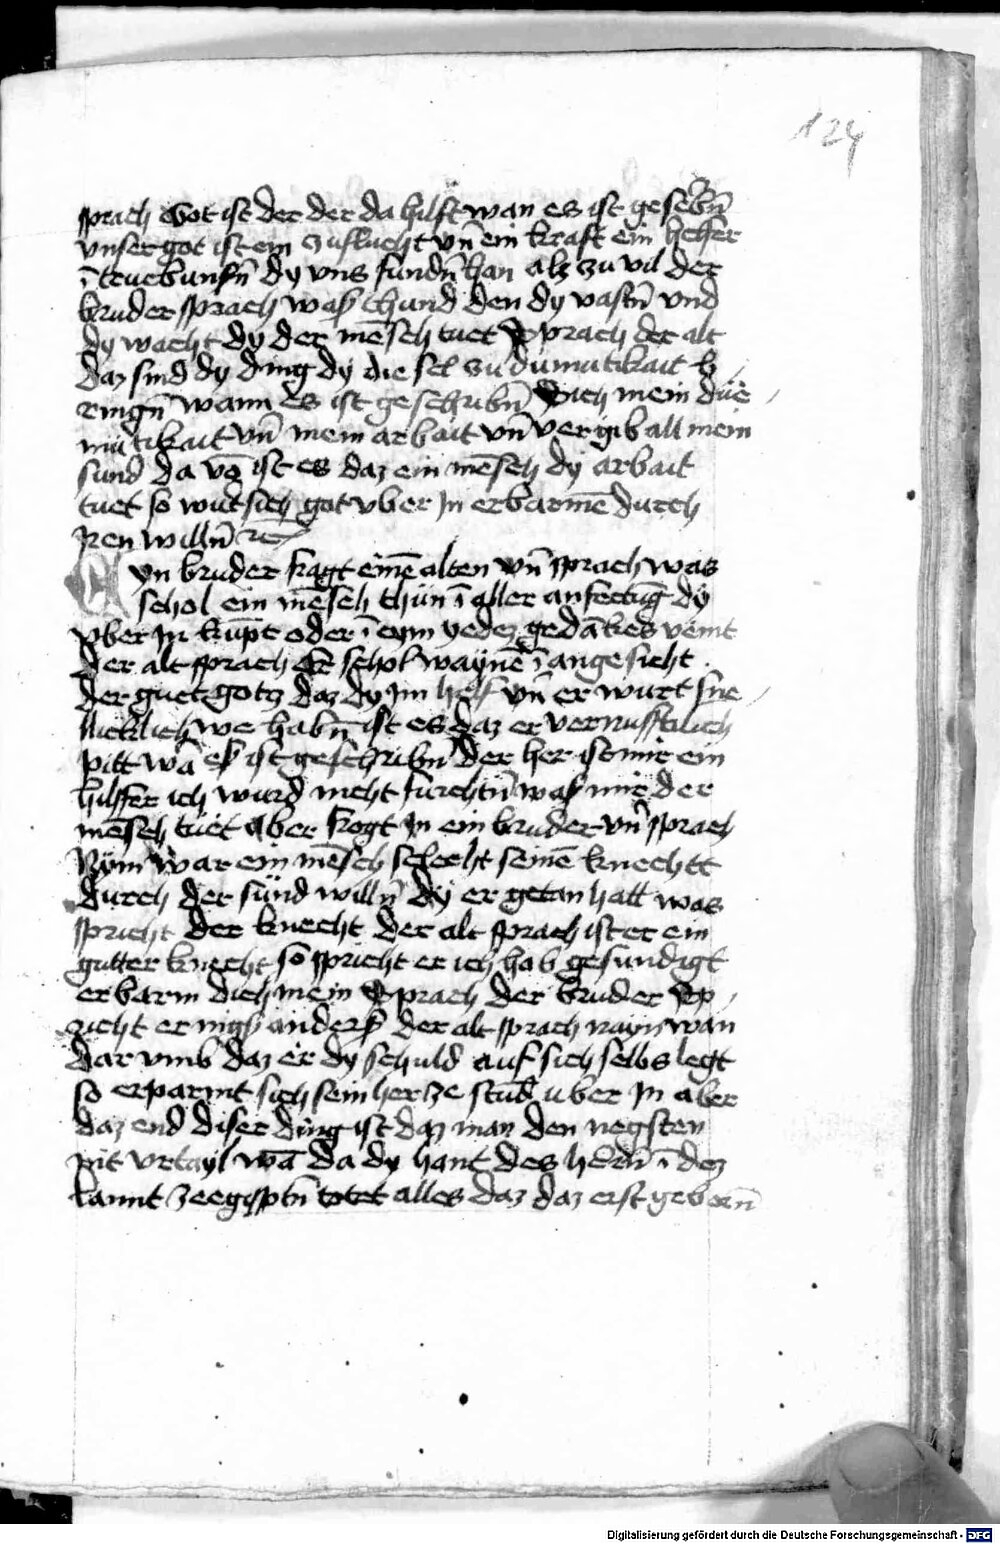 124
sprach Got ist der der da hilft wan es ist geschribn̄
vnser got ist ein zuflucht vn̄ ein kraft ein helfer
ī truebunsn̄ dy vns fundn̄ han alz zu vil der
bruder sprach was thund den dy vastn̄ vnd
dy wacht dy der mēsch tuet Sprach der alt
daz sind dy ding dy die sel zu dumutikait b
ringn̄ wann es ist geschribn̄ Sich mein due
mutikait vn̄ mein arbait vn̄ vergib all mein
sund da vō ist es daz ein mēsch dy arbait
tuet so wirt sich got vber In erbarmē durch
Iren willn̄ rc
Eyn bruder fragt einē alten vn̄ sprach was
schol ein mēsch thün ī aller anfectūg dy
vber In kūpt oder ī eym yedez gedākes veint
der alt sprach Er schol waynē ī angesicht
der guet gotz daz dy Im helf vn̄ er wurt sne
llicklich we habn̄ ist es daz er vernufftilich
pitt wā es ist geschribn̄ der her ist mir ein
hilffer ich wurd nicht furchtn̄ was mir der
mēsch tuet Aber fragt In ein bruder vn̄ sprach
Nym war ein mēsch schlecht seinē knechtt
durch der sünd willn̄ dy er getan hatt was
spricht der knecht der alt sprach ist er ein
gutter knecht so spricht er ich hab gesundigt
erbarm dich mein Sprach der bruder Sp
richt er nigs anders der alt sprach nayn wan
dar vmb daz er dy schuld auf sich selbs legt
so erparmt sich sein herre zestūd vber In aber
daz end diser ding ist daz man den negsten
nit vrtayl wā da dy hant des herrn̄ ī dez
lannt ze egiptn̄ totet alles daz daz erst gebern̄
Digitalisierung gefördert durch die Deutsche Forschungsgemeinschaft - DFG